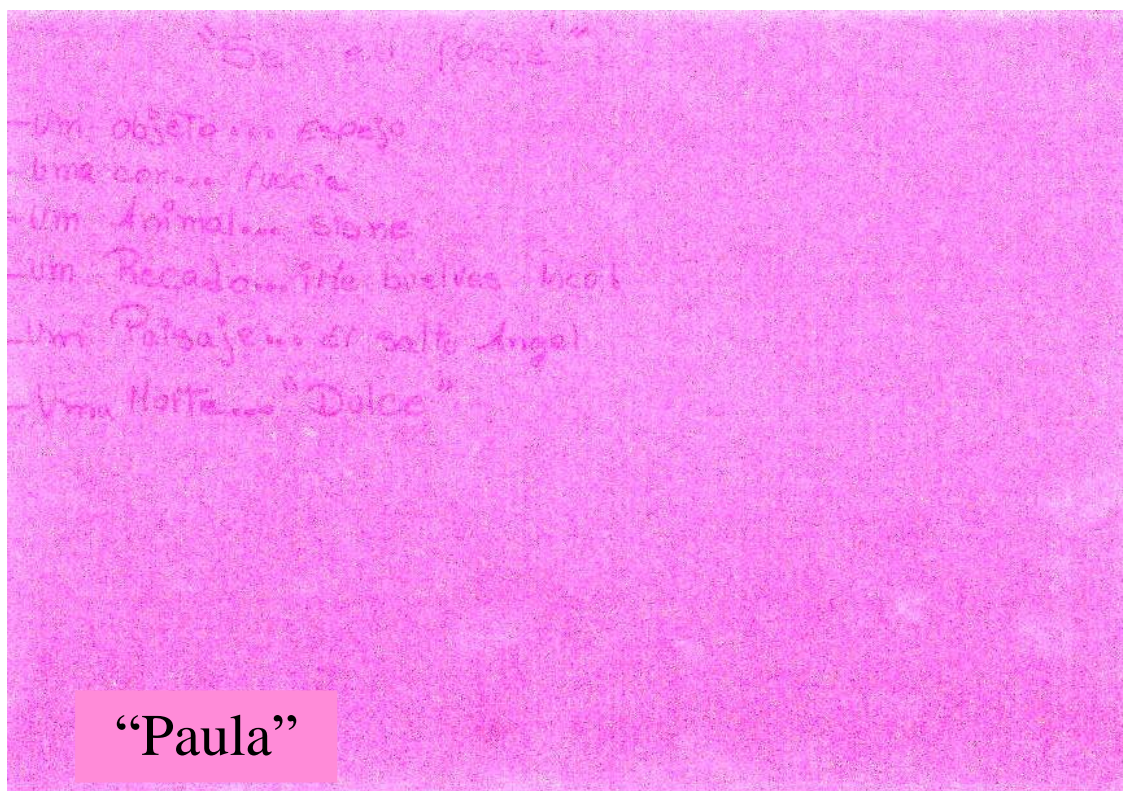 "Se eu fosse"
-Um objeto... espejo
-Uma cor... fuccia
-Um Animal... sisne
-Um Recado... ¡Me buelves loco!
-Um Paisaje... el salto Angel
-Uma Noite... "Dulce"
“Paula”